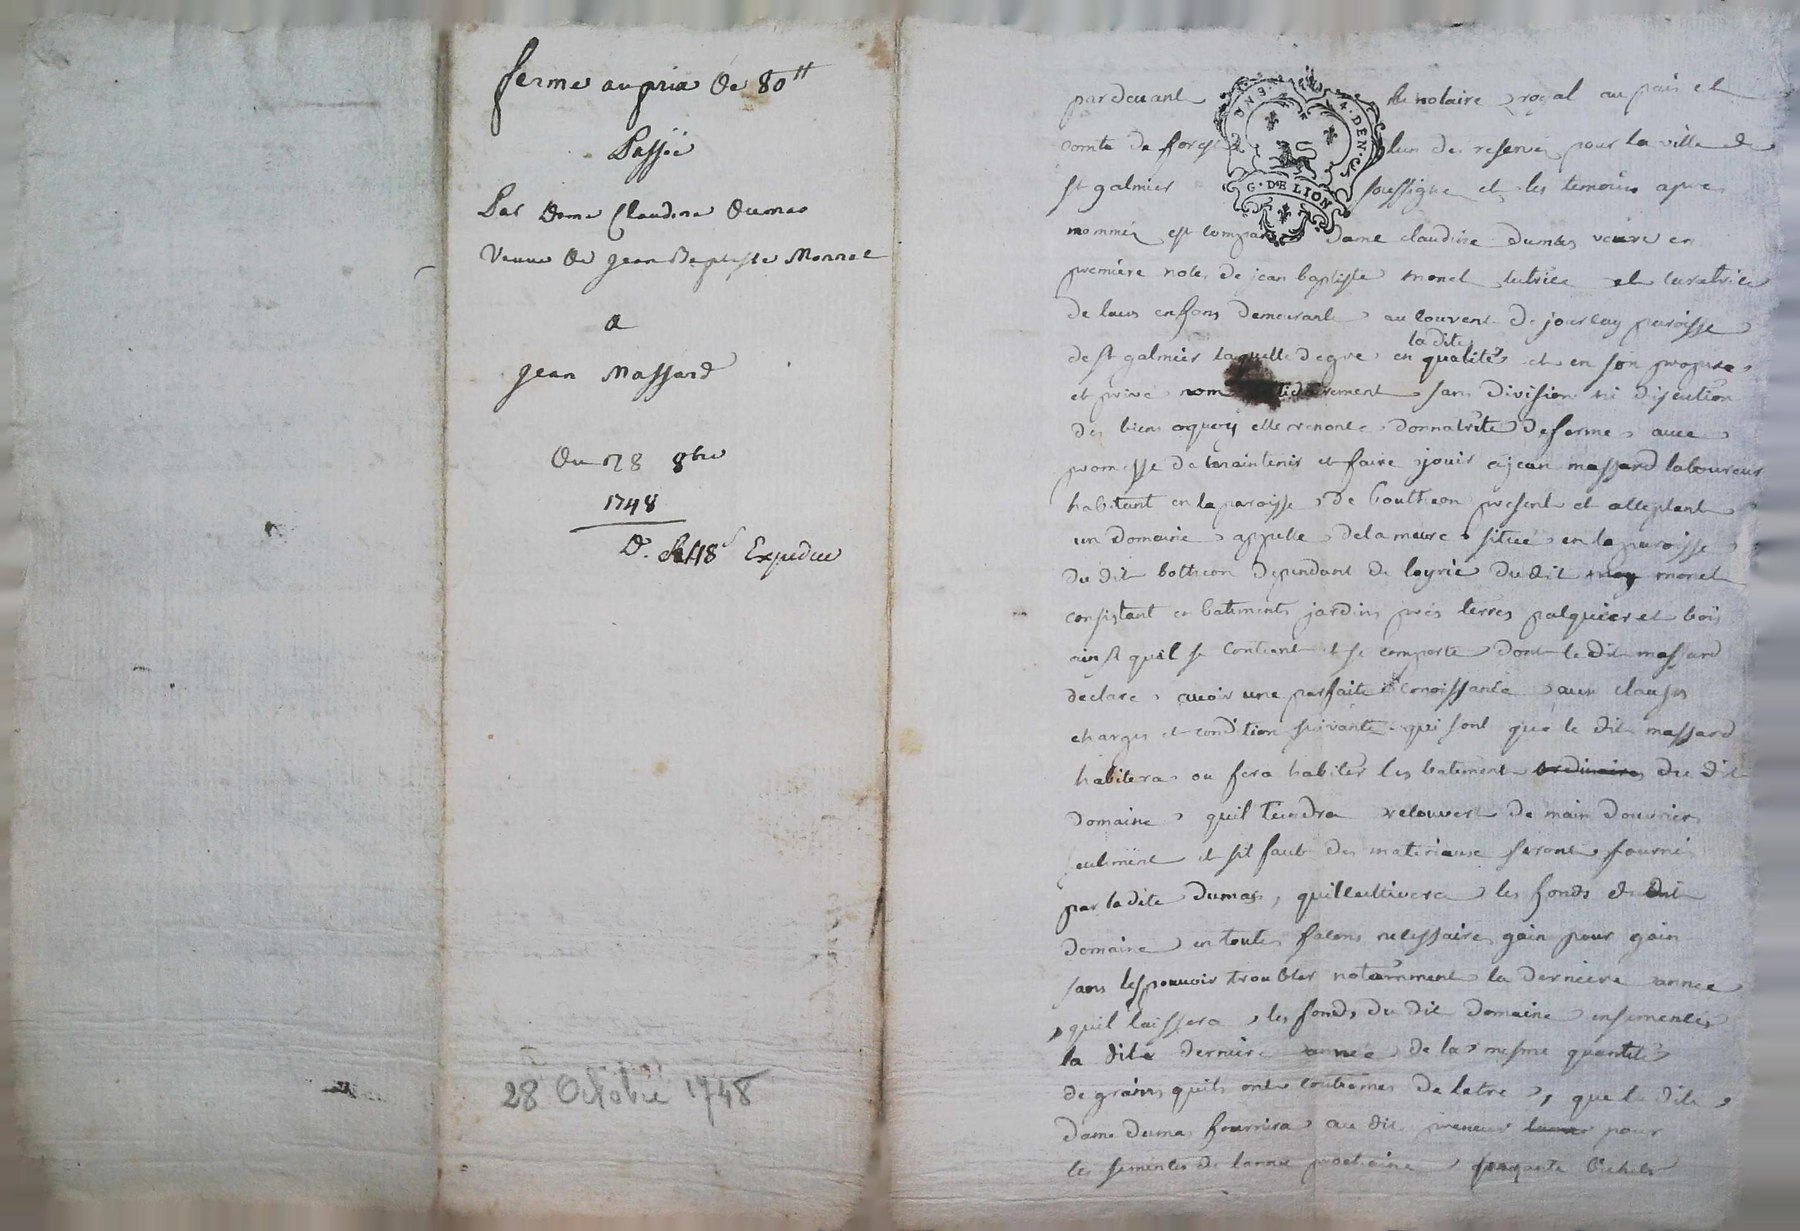 ferme au prix de 80 ₶
Passée
Par Dame Claudine Dumas
Veuve de Jean Baptiste Monnet
a
Jean Massard
Du 28 8bre
1748
Expediee
28 Octobre 1748
G. DE LION
pardevant le notaire royal au païs et
comte de forest lun des reserves pour la ville de
st galmier soussigne et les temoins apres
nommés est comparu Dame claudine dumas veuve en
premiere noles de jean baptiste monet tutrice et curatrice
de leurs enfans demeurante au couvent de jourcey paroisse
la dite
de st galmier laquelle de gre en qualité et en son propre
et privé nom sans division ni discution
des biens aquoy elle renonce donna titre de ferme avec
promesse de maintenir et faire jouir a jean massard laboureur
habitant en la paroisse de boutheon present et acceptant
un domaine appelle de la meure situé en la paroisse
du dit botheon dependant de loyrie du dit monet
consistant en batiments jardins prés terres palquier et bois
ainsi quil se contient et se comporte dont le dit massard
declare avoir une parfaite conoissance aux clauses
charges et condition suivante qui sont que le dit massard
habitera ou fera habiter les batiment ordinaires du dit
domaine quil tiendra recouvert de main douvrier
seulment et sil faut des materiaux seront fourni
par la dite Dumas, quil cultivera les fonds du dit
domaine en toutes facons necessaires gain pour gain
sans les pouvoir troubler notamment la derniere annee
quil laissera les fonds du dit domaine ensemencés
la dite derniere annee de la mesme quantité
de grains quils ont coutumes de letre, que la dite
dame dumas fournira au dit preneur pour
les semences de lannee prochaine bichets